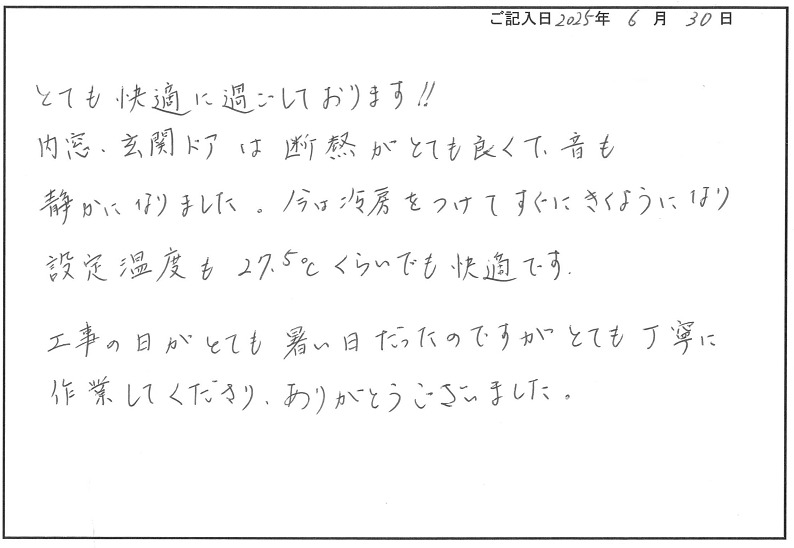 ご記入日2025年 6 月 30 日
とても快適に過ごしております!!
内窓、玄関ドアは断熱がとても良くて、音も
静かになりました。今は冷房をつけてすぐにきくようになり
設定温度も27.5℃くらいでも快適です。
工事の日がとても暑い日だったのですがとても丁寧に
作業してくださり、ありがとうございました。